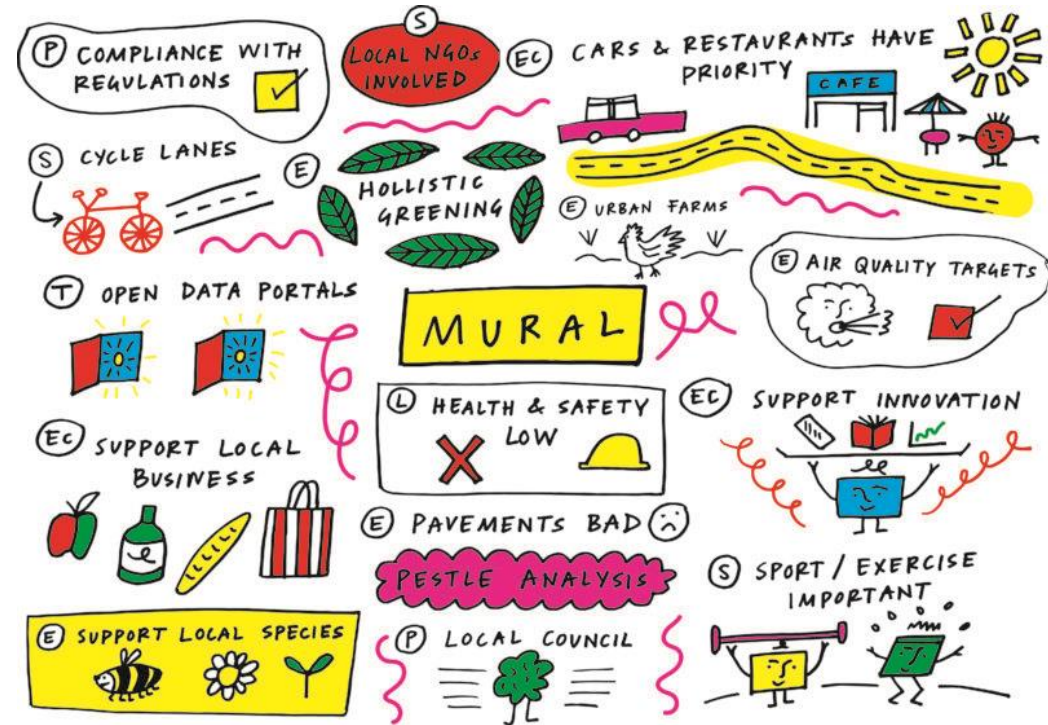 P COMPLIANCE WITH
REGULATIONS
S
LOCAL NGOs
INVOLVED
EC CARS & RESTAURANTS HAVE
PRIORITY
CAFE
S CYCLE LANES
E
HOLLISTIC
GREENING
E URBAN FARMS
E AIR QUALITY TARGETS
T OPEN DATA PORTALS
MURAL
L HEALTH & SAFETY
LOW
EC SUPPORT INNOVATION
EC SUPPORT LOCAL
BUSINESS
E PAVEMENTS BAD
PESTLE ANALYSIS
S SPORT / EXERCISE
IMPORTANT
E SUPPORT LOCAL SPECIES
P LOCAL COUNCIL